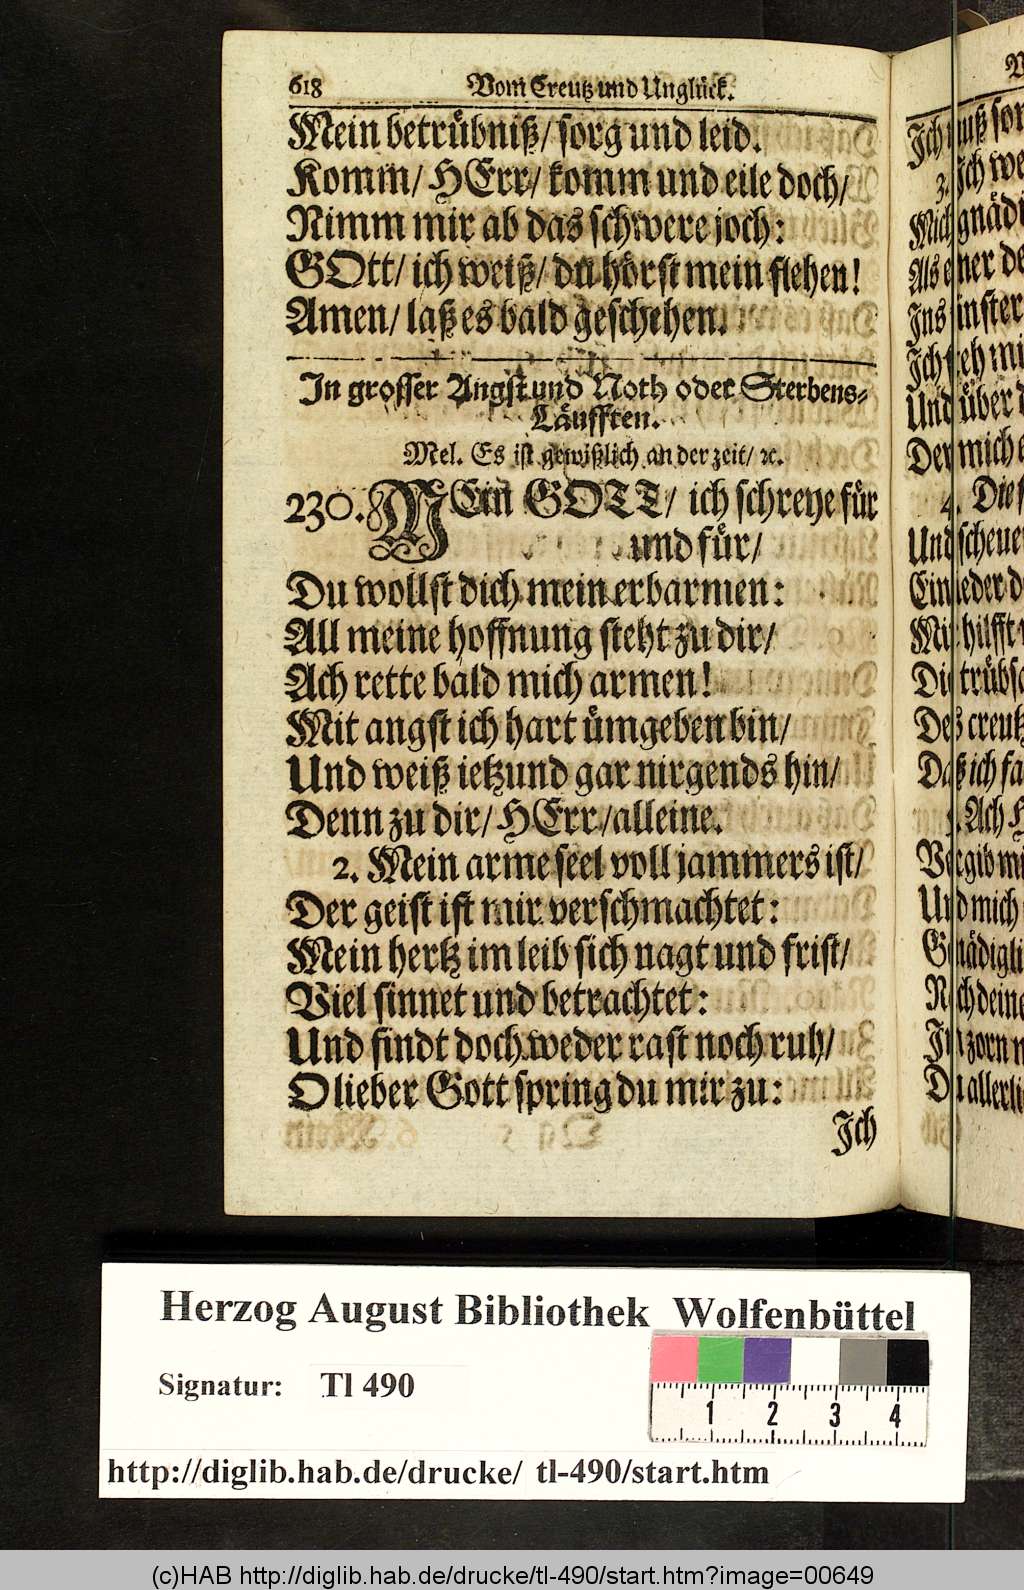 618 Vom Creutz und Unglück.
Mein betrübniß/ sorg und leid.
Komm/ HErr/ komm und eile doch/
Nimm mir ab das schwere joch:
GOtt/ ich weiß/ du hörst mein flehen!
Amen/ laß es bald geschehen.
In grosser Angst und Noth oder Sterbens-
Läufften.
Mel. Es ist gewißlich an der zeit/ ꝛc.
230. MEin GOTT/ ich schreye für
und für/
Du wollst dich mein erbarmen:
All meine hoffnung steht zu dir/
Ach rette bald mich armen!
Mit angst ich hart ümgeben bin/
Und weiß ietzund gar nirgends hin/
Denn zu dir/ HErr/ alleine.
2. Mein arme seel voll jammers ist/
Der geist ist mir verschmachtet:
Mein hertz im leib sich nagt und frist/
Viel sinnet und betrachtet:
Und findt doch weder rast noch ruh/
O lieber Gott spring du mir zu:
Ich
Herzog August Bibliothek Wolfenbüttel
Signatur: Tl 490
1 2 3 4
http://diglib.hab.de/drucke/ tl-490/start.htm
(c)HAB http://diglib.hab.de/drucke/tl-490/start.htm?image=00649